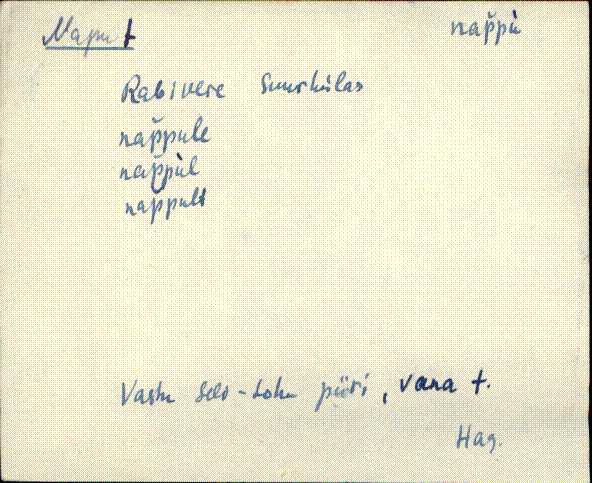 Napu t nap̆pù
Rabivere Suurkülas
nap̆pule
nap̆pùl
nap̆pult
Vastu Seli-Lohu piiri, vana t.
Hag.